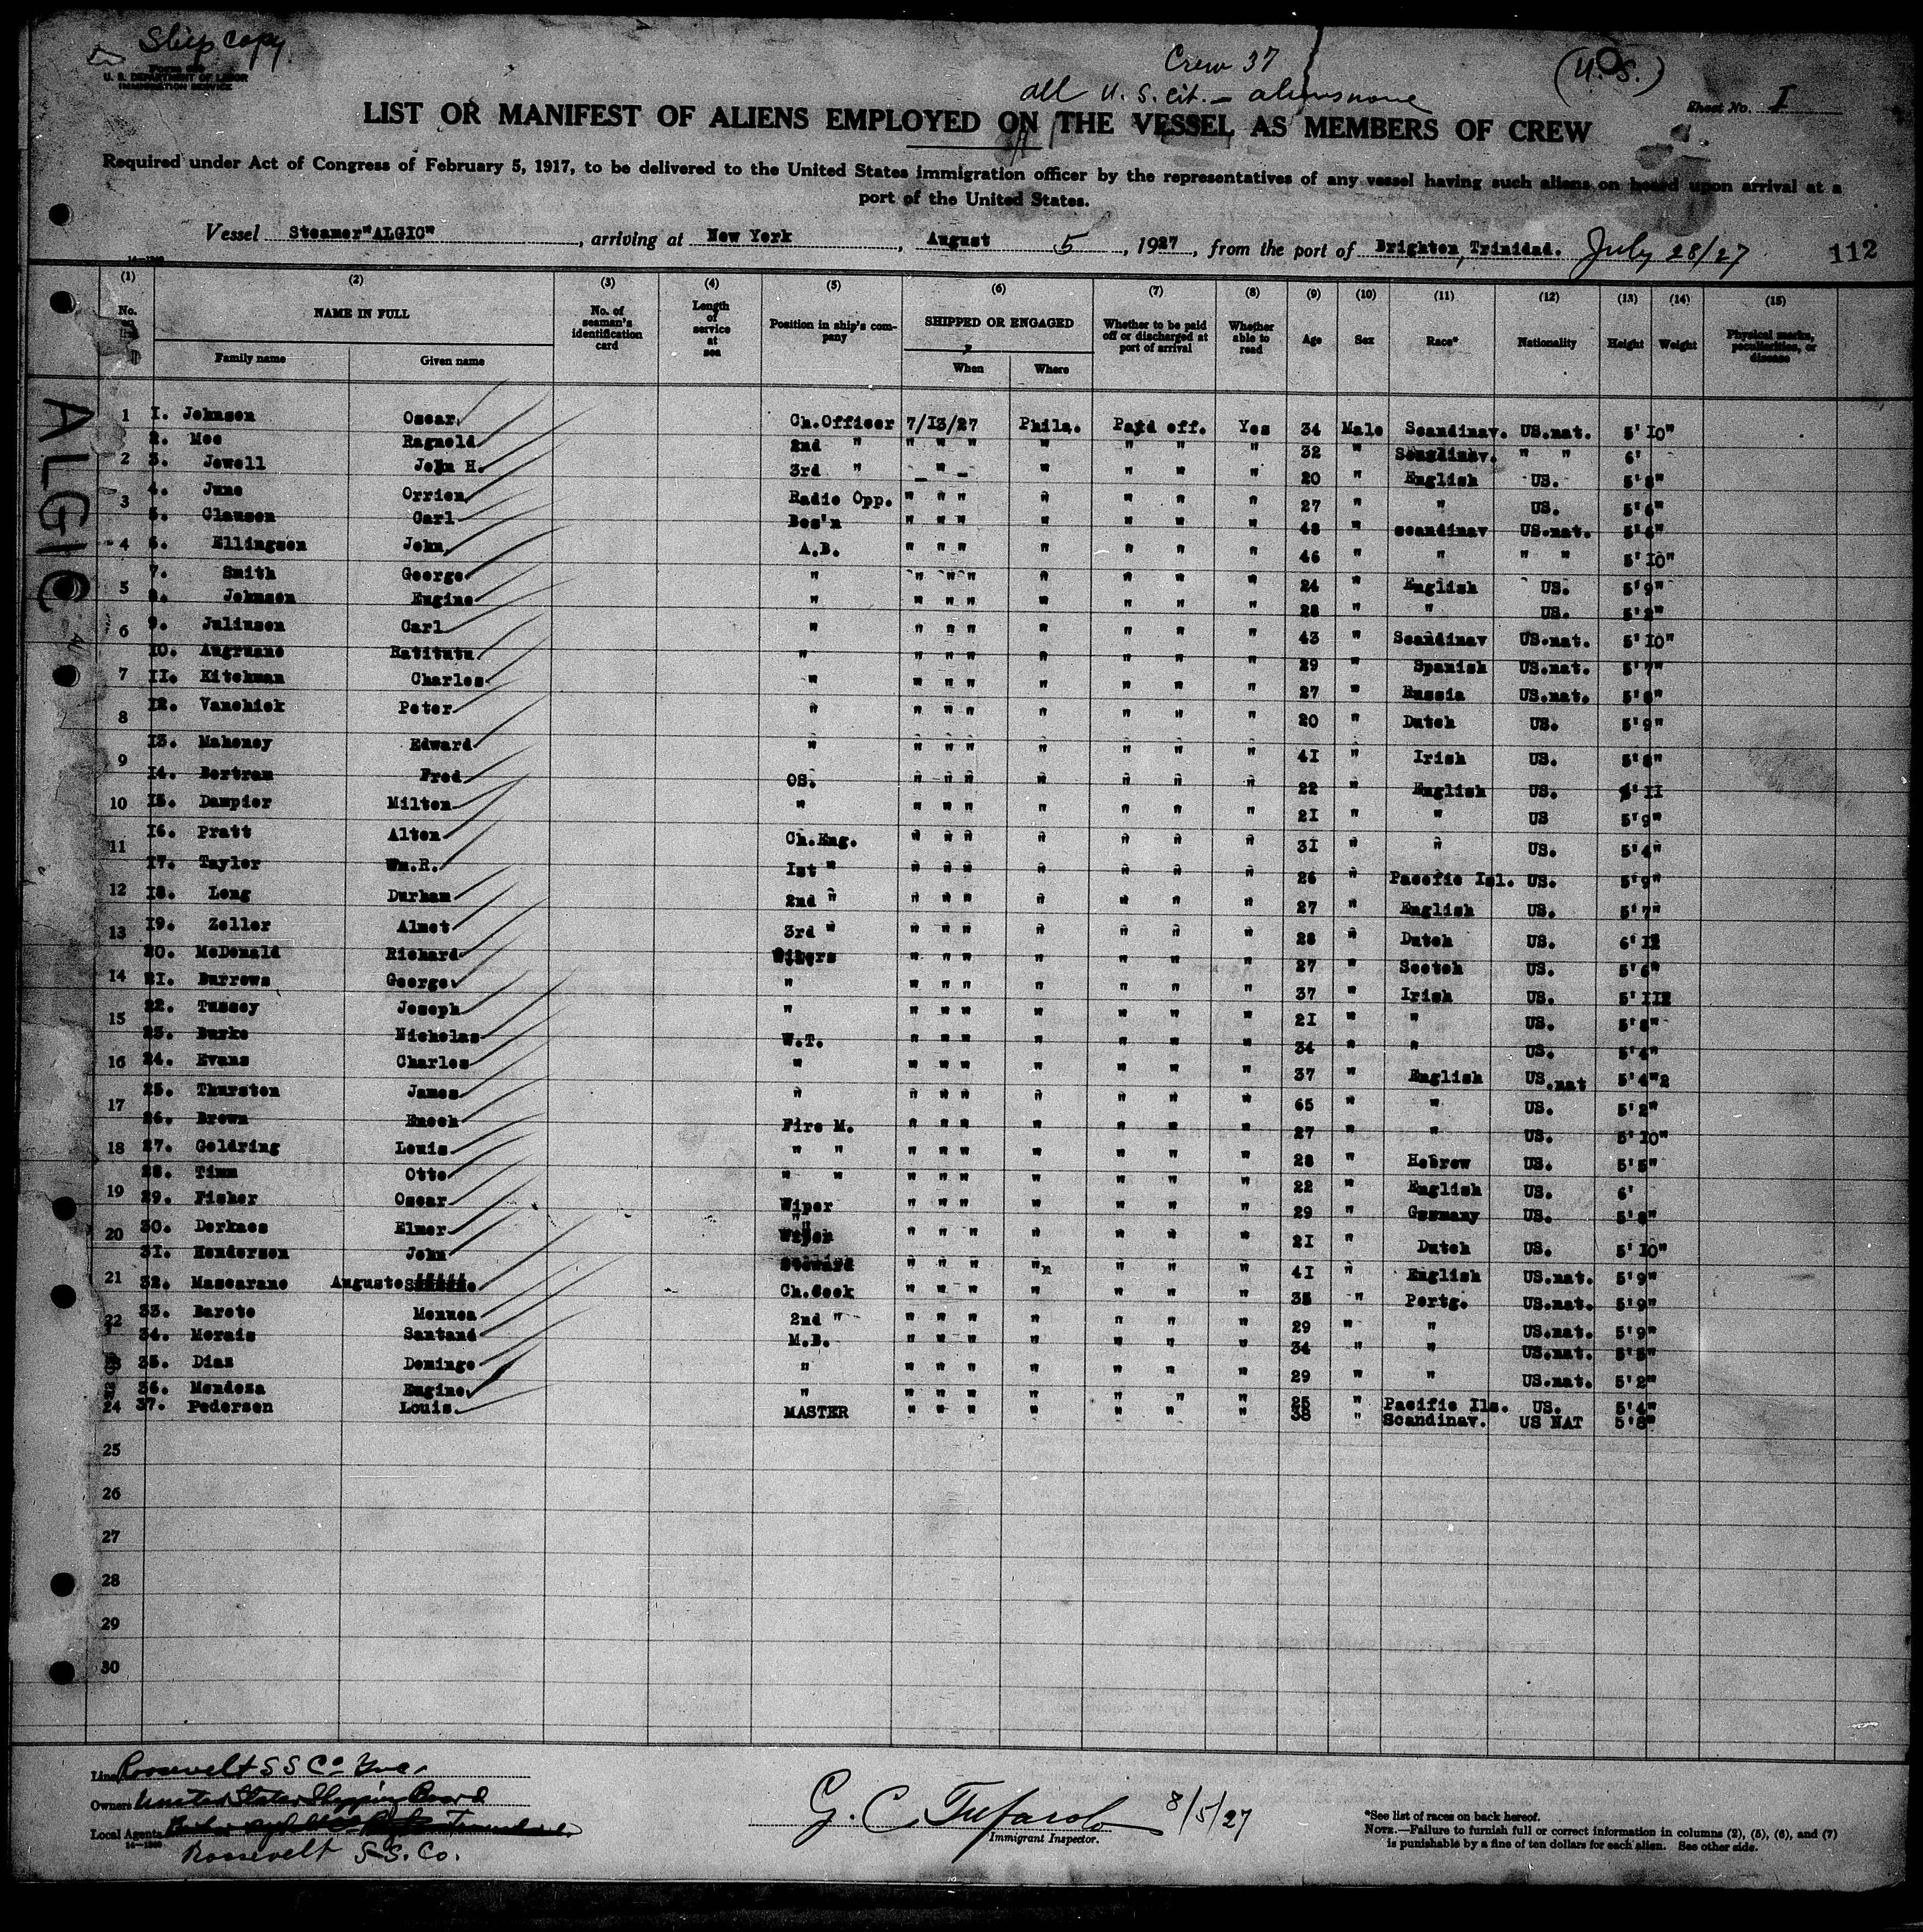 Ship copy
U. S. DEPARTMENT OF LABOR
IMMIGRATION SERVICE
Crew 37
all U. S. cit. – aliens none
(U. S.)
Sheet No. I
LIST OR MANIFEST OF ALIENS EMPLOYED ON THE VESSEL AS MEMBERS OF CREW
Required under Act of Congress of February 5, 1917, to be delivered to the United States immigration officer by the representatives of any vessel having such aliens on board upon arrival at a
port of the United States.
Vessel Steamer "ALGIC", arriving at New York, August 5, 1927, from the port of Brighton, Trinidad. July 28/27 112
ALGIC
(1) (2) (3) (4) (5) (6) (7) (8) (9) (10) (11) (12) (13) (14) (15)
No. NAME IN FULL Family name Given name No. of seaman's identification card Length of service at sea Position in ship's company SHIPPED OR ENGAGED When Where Whether to be paid off or discharged at port of arrival Whether able to read Age Sex Race* Nationality Height Weight Physical marks, peculiarities, or disease
1. Johnsen Oscar. Ch.Officer 7/13/27 Phila. Paid off. Yes 34 Male Scandinav. US.nat. 5' 10"
2. Moe Ragnold 2nd " " " " " " " " 32 " Scandinav. " " 6'
3. Jewell John H. 3rd " " " " " " 20 " English US. 5'8"
4. June Orrien Radio Opp. " " " " " " " 27 " " US. 5'6"
5. Clausen Carl Bos'n " " " " " " " 48 " scandinav US.nat. 5'6"
6. Ellingsen John A.B. " " " " " " " 46 " " " " 5' 10"
7. Smith George " " " " " " " " 24 " English US. 5'9"
8. Johnson Eugine " " " " " " " " 28 " " US. 5'8"
9. Juliusen Carl " " " " " " " " 43 " Scandinav US.nat. 5' 10"
10. Augruano Ratitutu " " " " " " " " 29 " Spanish US.nat. 5'7"
11. Kitchman Charles " " " " " " " " 27 " Russia US.nat. 5'8"
12. Vanchick Peter " " " " " " " " 20 " Dutch US. 5'9"
13. Mahoney Edward " " " " " " " " 41 " Irish US. 5'8"
14. Bertram Fred OS. " " " " " " " 22 " English US. 11
15. Dampier Milton " " " " " " " " 21 " " US 5'9"
16. Pratt Alton Ch.Eng. " " " " " " " 31 " " US. 5'4"
17. Taylor Wm.R. 1st " " " " " " " " 26 " Pacefic Isl. US. 5'9"
18. Long Durham 2nd " " " " " " " " 27 " English US. 5'7"
19. Zeller Almet 3rd " " " " " " " " 28 " Dutch US. 6'
20. McDonald Richard " " " " " " " 27 " Scotch US. 5'6"
21. Burrows George " " " " " " " " 37 " Irish US. 5' 11
22. Tussey Joseph " " " " " " " " 21 " " US. 5'8"
23. Burke Nicholas W.T. " " " " " " " 34 " " US. 5'4"
24. Evans Charles " " " " " " " " 37 " English US.nat 5'4"2
25. Thurston James " " " " " " " " 65 " " US. 5'2"
26. Brown Enoch Fire M. " " " " " " " 27 " " US. 5' 10"
27. Goldring Louis " " " " " " " " " 28 " Hebrew US. 5'5"
28. Timm Otto " " " " " " " " " 22 " English US. 6'
29. Fisher Oscar Wiper " " " " " " " 29 " Germany US. 5'8"
30. Derkaes Elmer " " " " " " " 21 " Dutch US. 5' 10"
31. Henderson John Steward " " " " " " " 41 " English US.nat. 5'9"
32. Mascarano Auguste Ch.Cook " " " " " " " 35 " Portg. US.nat. 5'9"
33. Barote Mennea 2nd " " " " " " " " 29 " " US.nat. 5'9"
34. Morais Santand M.B. " " " " " " " 34 " " US.nat. 5'5"
35. Dias Domingo " " " " " " " " 29 " " US.nat. 5'2"
36. Mendoza Eugine " " " " " " " " 25 " Pacific Ils. US. 5'4"
37. Pedersen Louis. MASTER " " " " " " " 38 " Scandinav. US NAT 5'8"
25
26
27
28
29
30
Line Roosevelt S S Co Inc.
Owners United States Shipping Board
Local Agents
Roosevelt S.S. Co.
G. C. Tufarolo 8/5/27
Immigrant Inspector.
*See list of races on back hereof.
NOTE.—Failure to furnish full or correct information in columns (2), (5), (6), and (7)
is punishable by a fine of ten dollars for each alien. See other side.